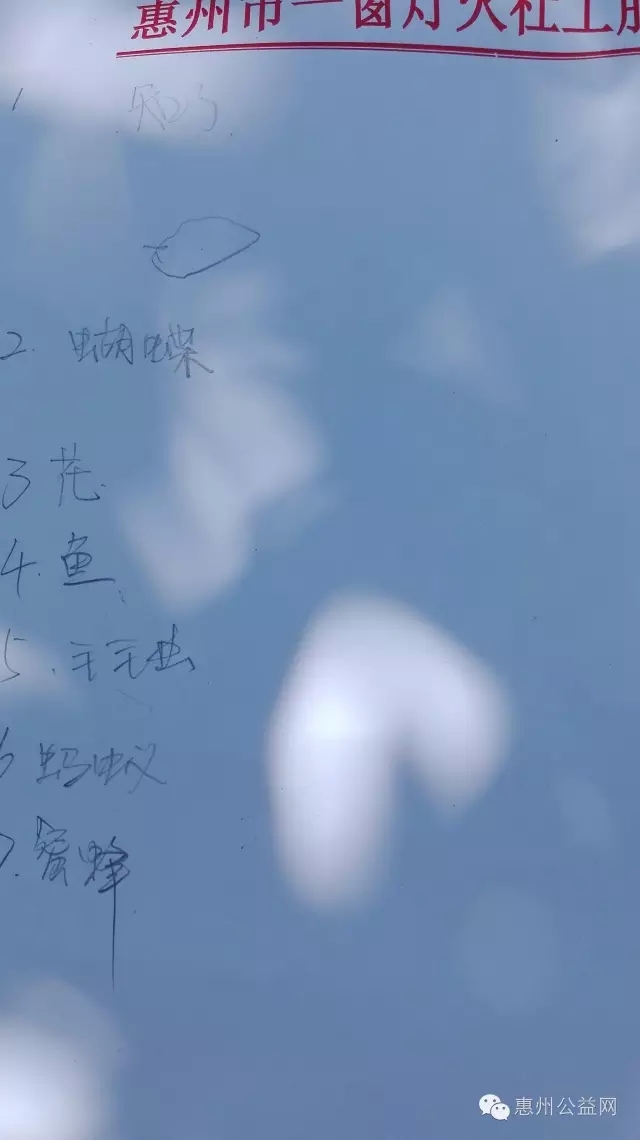 惠州市一窗灯火社工服
1 知了
2. 蝴蝶
3 花
4. 鱼
5. 毛毛虫
6 蚂蚁
7. 蜜蜂
惠州公益网